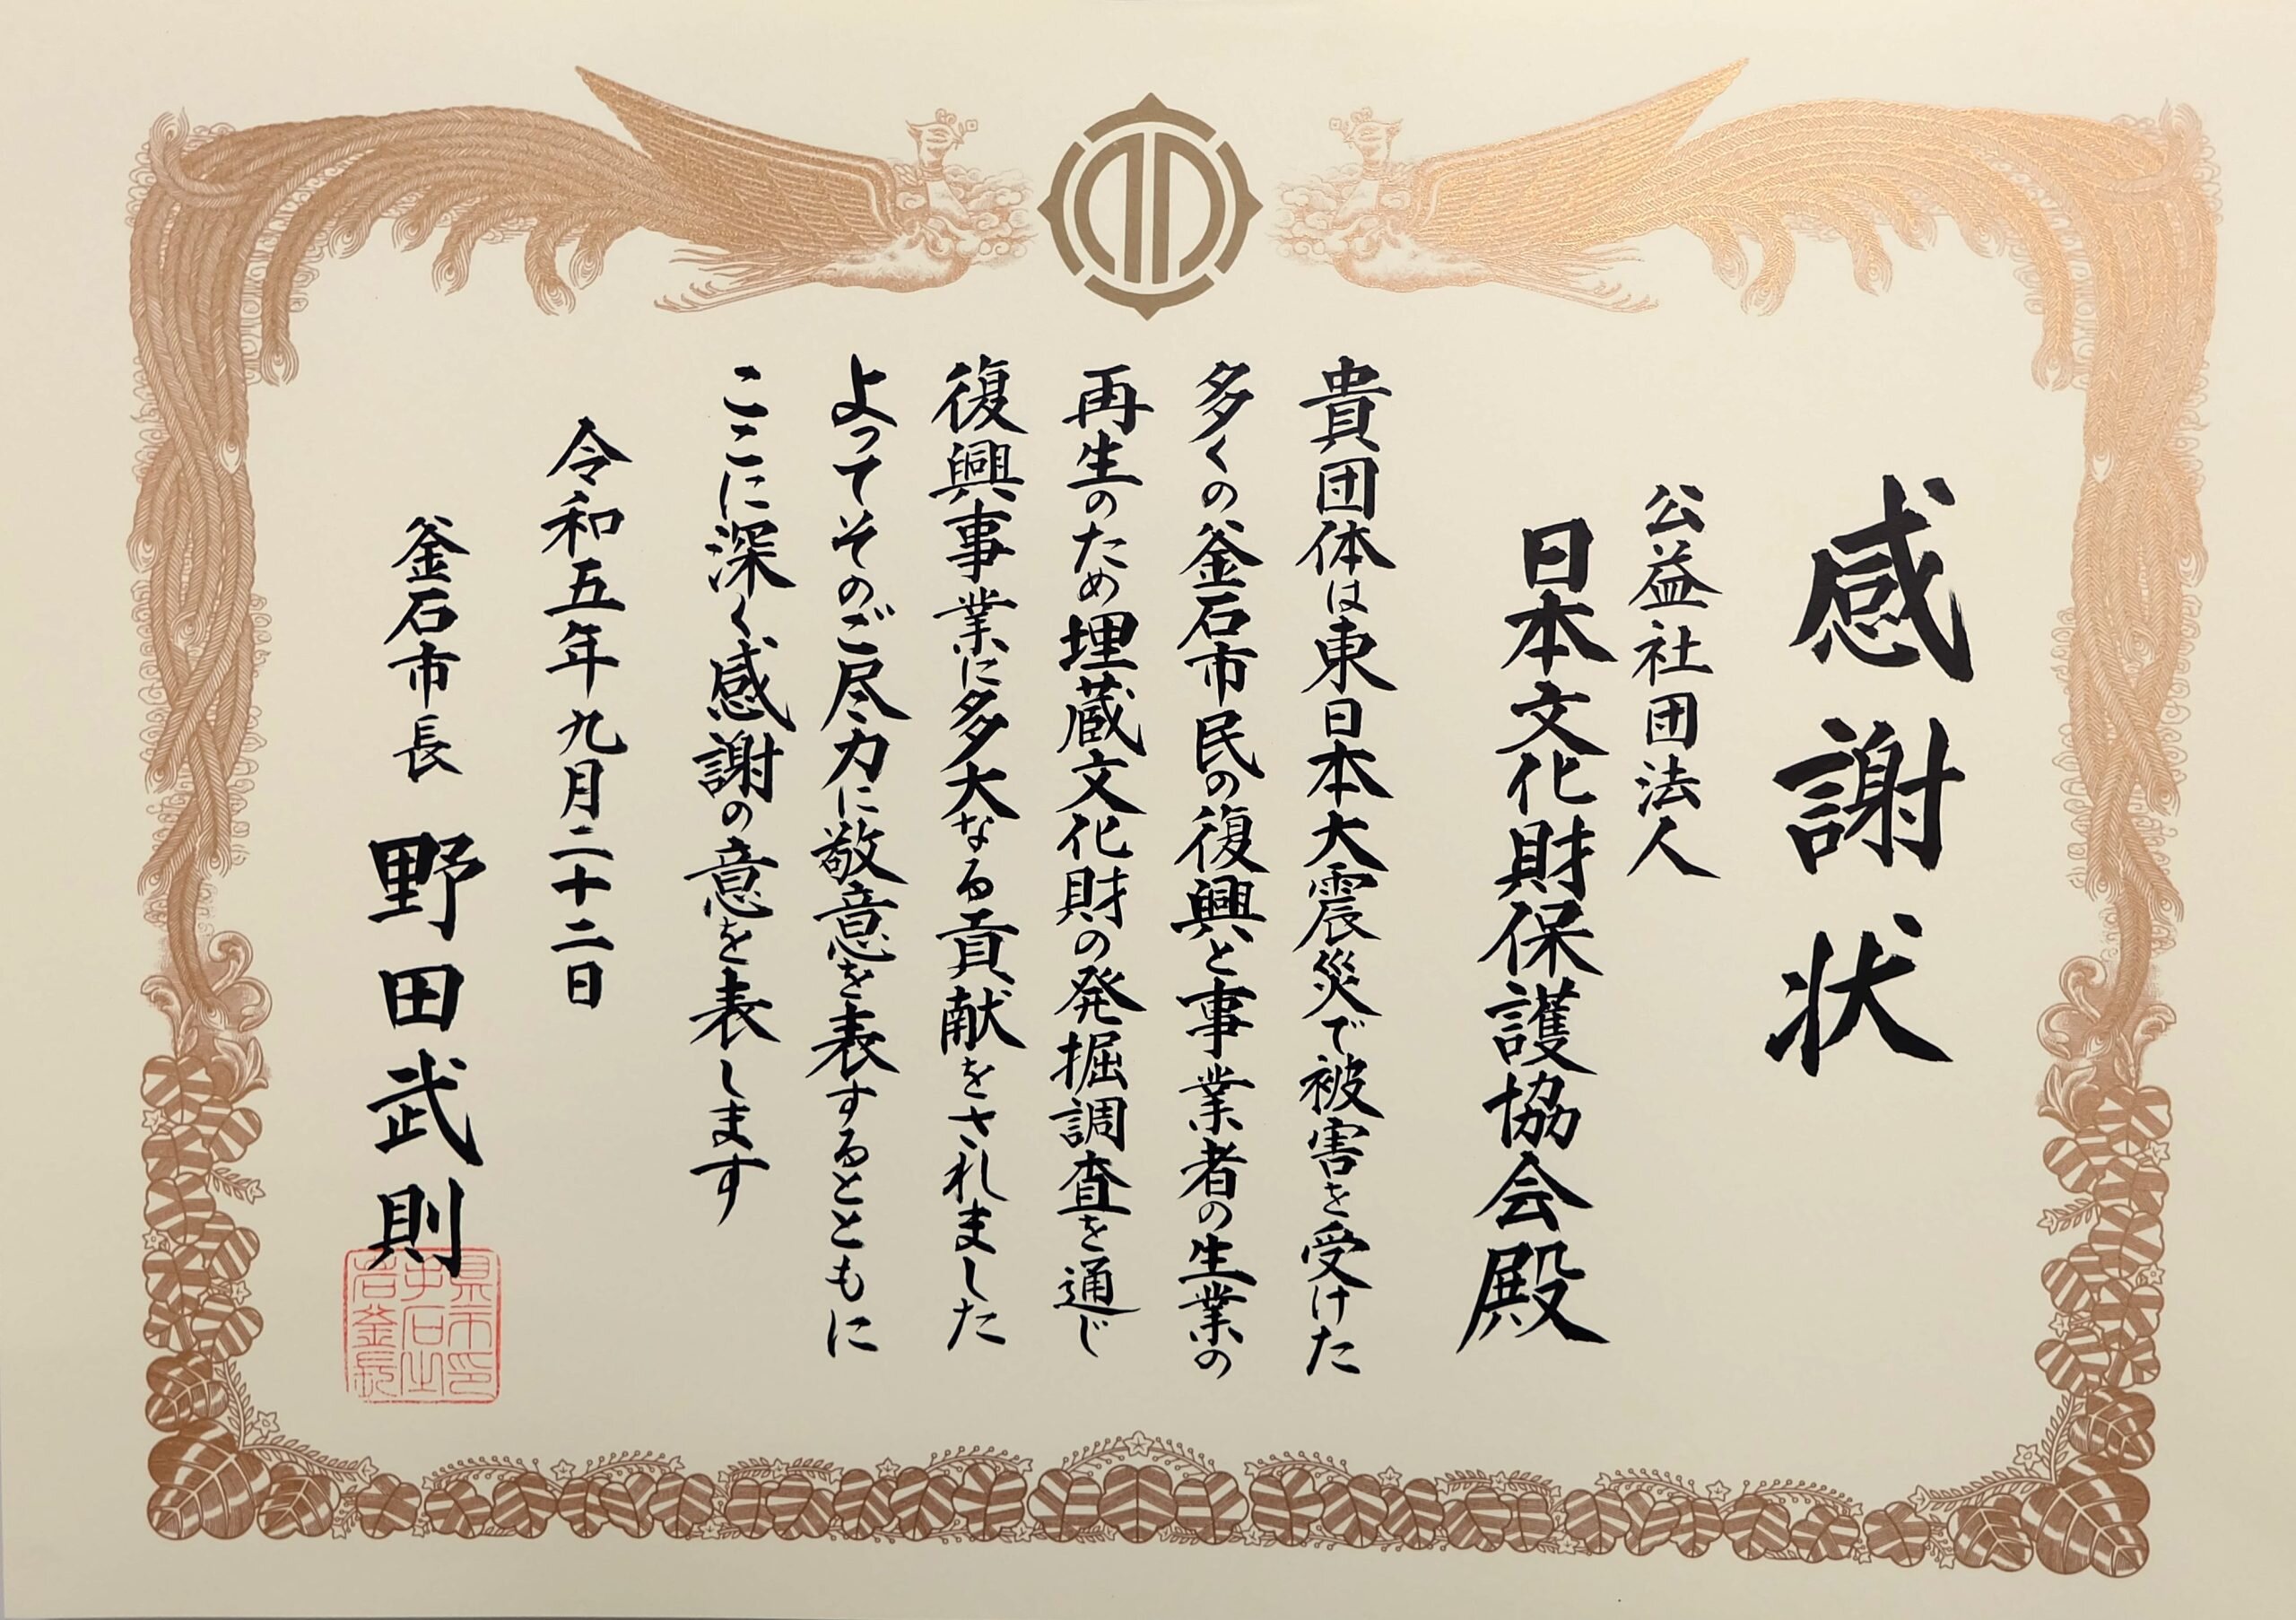 感謝状
公益社団法人
日本文化財保護協会殿
貴団体は東日本大震災で被害を受けた
多くの釜石市民の復興と事業者の生業の
再生のため埋蔵文化財の発掘調査を通じ
復興事業に多大なる貢献をされました
よってそのご尽力に敬意を表するとともに
ここに深く感謝の意を表します
令和五年九月二十二日
釜石市長 野田武則
岩手県
釜石市
長之印